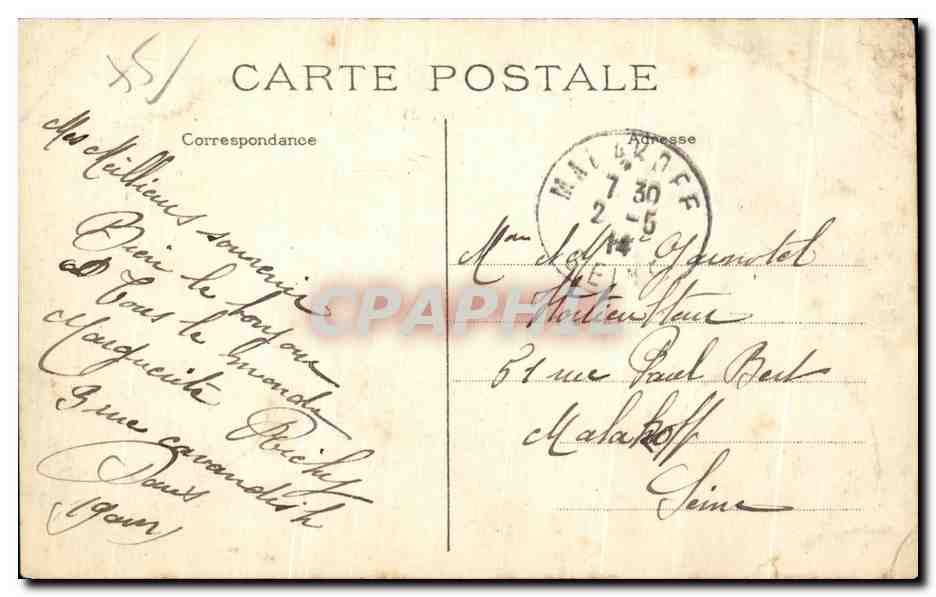 CARTE POSTALE
Correspondance
Mes Meillieurs souvenirs
Bien le bonjour
a Tous le monde
Marguerite Richy
9 rue cavandish
Paris
19 arr
Adresse
MALAKOFF
7 30
2 - 5
14
SEINE
Mme
Horticulteur
51 rue Paul Bert
Malakoff
Seine
CPAPHIL